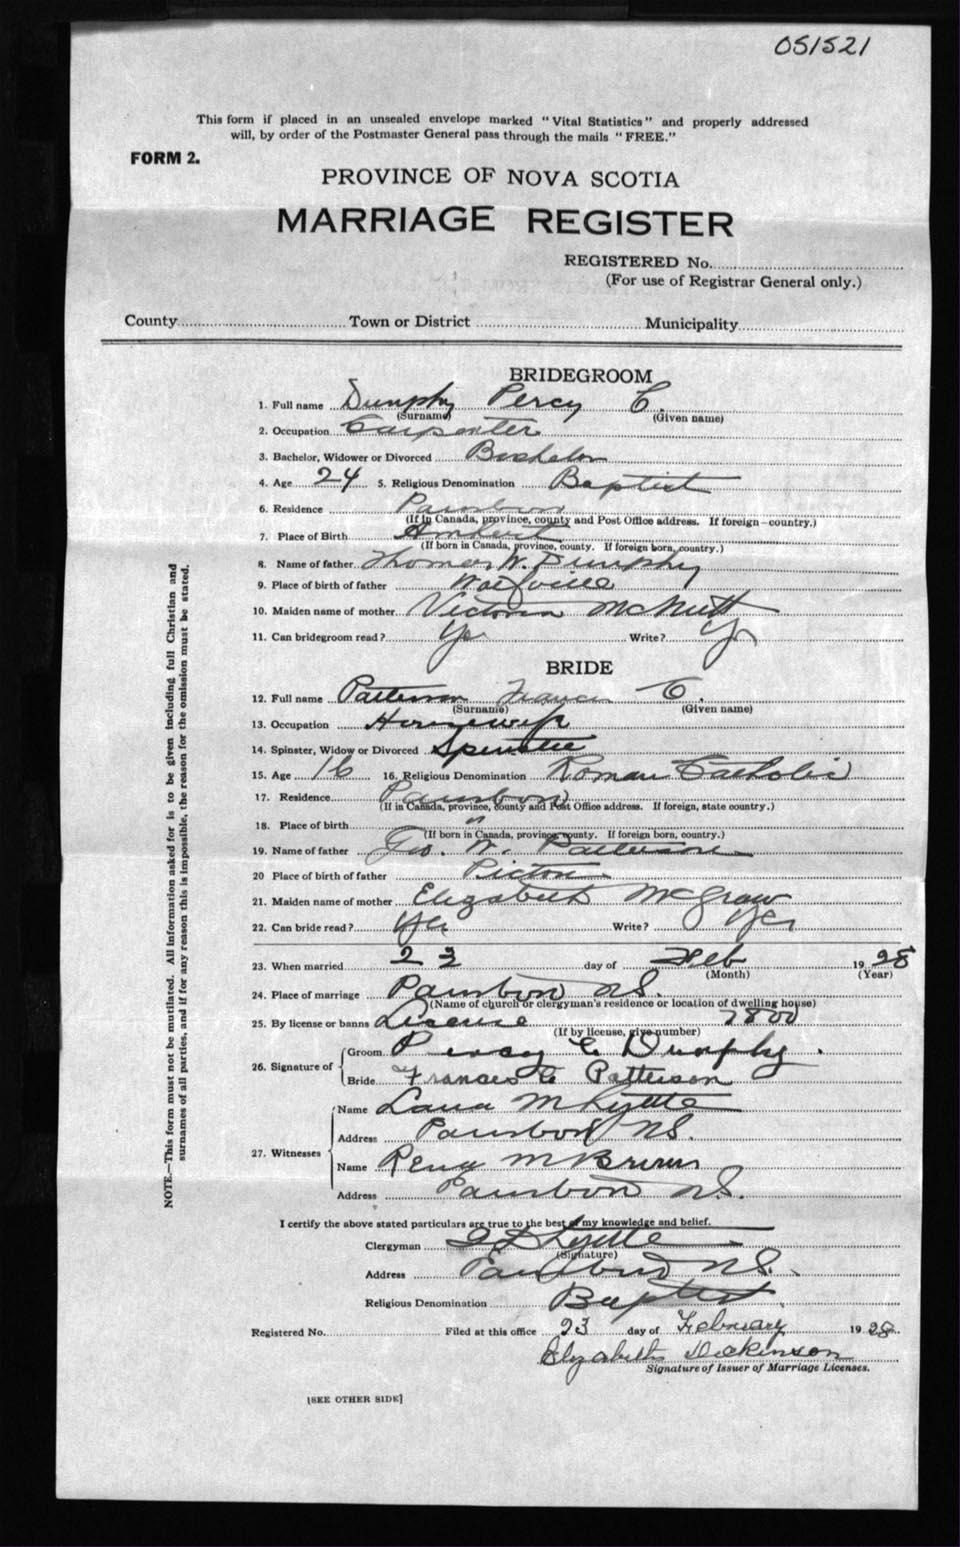 051521
This form if placed in an unsealed envelope marked "Vital Statistics" and properly addressed
will, by order of the Postmaster General pass through the mails "FREE."
FORM 2.
PROVINCE OF NOVA SCOTIA
MARRIAGE REGISTER
REGISTERED No.
(For use of Registrar General only.)
County Town or District Municipality
BRIDEGROOM
1. Full name Dunphy Percy C.
(Surname) (Given name)
2. Occupation Carpenter
3. Bachelor, Widower or Divorced Bachelor
4. Age 24 5. Religious Denomination Baptist
6. Residence Parrsboro
(If in Canada, province, county and Post Office address. If foreign—country.)
7. Place of Birth Amherst
(If born in Canada, province, county. If foreign born, country.)
8. Name of father Thomas W. Dunphy
9. Place of birth of father Wolfville
10. Maiden name of mother Victoria McNutt
11. Can bridegroom read? Yes Write? Yes
BRIDE
12. Full name Patterson Frances C.
(Surname) (Given name)
13. Occupation Housewife
14. Spinster, Widow or Divorced Spinster
15. Age 16 16. Religious Denomination Roman Catholic
17. Residence Parrsboro
(If in Canada, province, county and Post Office address. If foreign, state country.)
18. Place of birth "
(If born in Canada, province, county. If foreign born, country.)
19. Name of father Geo. W. Patterson
20 Place of birth of father Pictou
21. Maiden name of mother Elizabeth McGraw
22. Can bride read? Yes Write? Yes
23. When married 23 day of Feb 1928
(Month) (Year)
24. Place of marriage Parrsboro N.S.
(Name of church or clergyman's residence or location of dwelling house)
25. By license or banns License 7800
(If by license, give number)
26. Signature of Groom Percy C Dunphy.
Bride Frances C Patterson
27. Witnesses Name Laura M Lyttle
Address Parrsboro N.S.
Name Rena M Brown
Address Parrsboro N.S.
I certify the above stated particulars are true to the best of my knowledge and belief.
Clergyman Lyttle
(Signature)
Address Parrsboro N.S.
Religious Denomination Baptist
Registered No. Filed at this office 23 day of February 1928
Elizabeth Dickinson
Signature of Issuer of Marriage Licenses.
[SEE OTHER SIDE]
NOTE.—This form must not be mutilated. All information asked for is to be given including full Christian and
surnames of all parties, and if for any reason this is impossible, the reason for the omission must be stated.